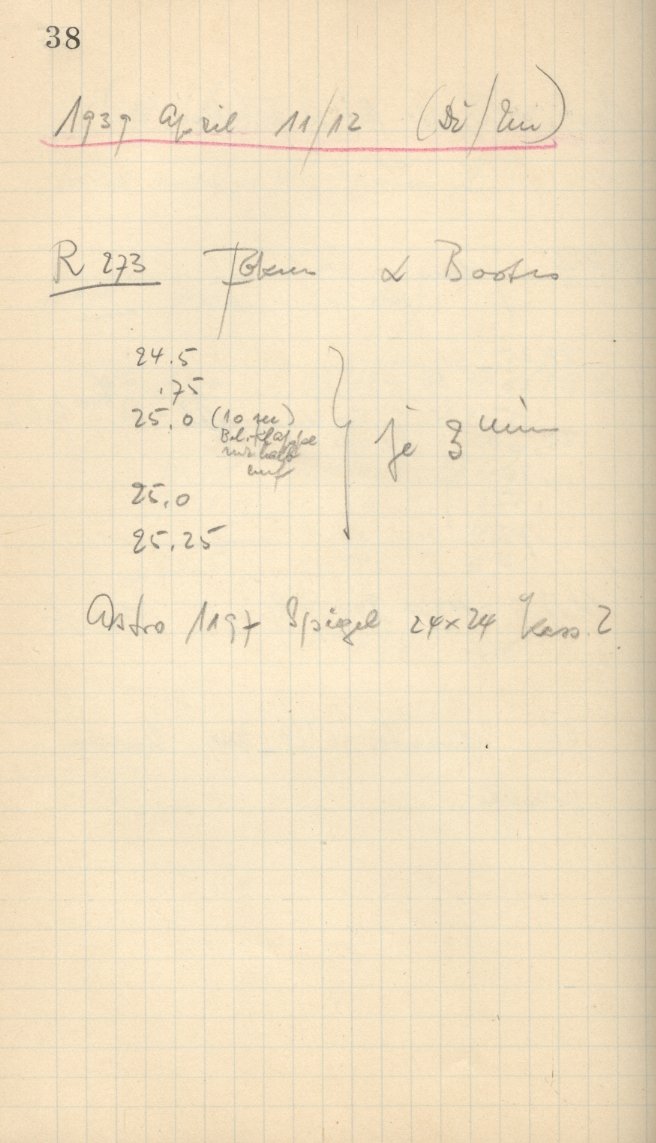 38
1939 April 11/12 (Di/Mi)
R 273 Fokus α Bootis
24.5
.75
25.0 (10 sec)
nur halb
auf
25.0
25.25
je 3 min
Astro 1197 Spiegel 24×24 Kass. 2